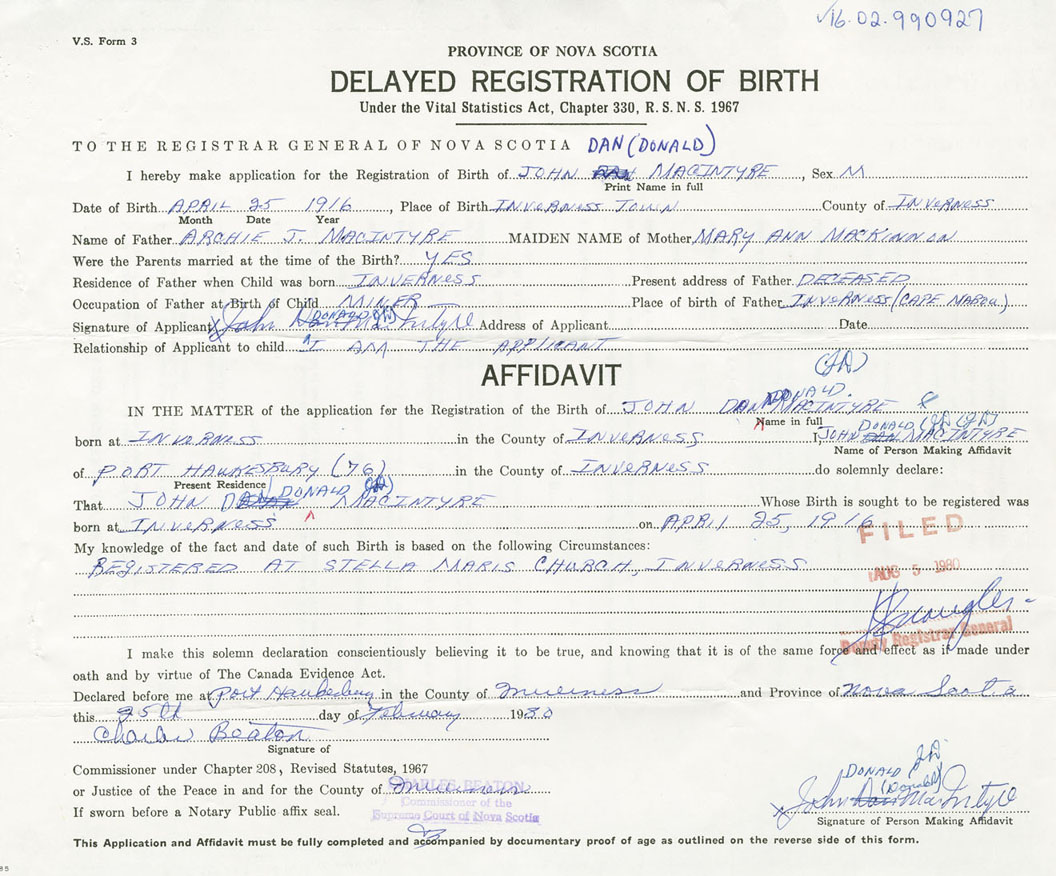 16.02.990927
V.S. Form 3
PROVINCE OF NOVA SCOTIA
DELAYED REGISTRATION OF BIRTH
Under the Vital Statistics Act, Chapter 330, R.S.N.S. 1967
TO THE REGISTRAR GENERAL OF NOVA SCOTIA DAN (DONALD)
I hereby make application for the Registration of Birth of JOHN MACINTYRE, Sex M
Print Name in full
Date of Birth APRIL 25 1916, Place of Birth INVERNESS TOWN County of INVERNESS
Month Date Year
Name of Father ARCHIE J. MACINTYRE MAIDEN NAME of Mother MARY ANN MACKINNON
Were the Parents married at the time of the Birth? YES
Residence of Father when Child was born INVERNESS Present address of Father DECEASED
Occupation of Father at Birth of Child MINER Place of birth of Father INVERNESS (CAPE MABOU)
DONALD
Signature of Applicant X John Dan MacIntyre Address of Applicant Date
Relationship of Applicant to child I AM THE APPLICANT
AFFIDAVIT
DONALD
IN THE MATTER of the application for the Registration of the Birth of JOHN DAN MACINTYRE
Name in full DONALD
born at INVERNESS in the County of INVERNESS I, JOHN DAN MACINTYRE
Name of Person Making Affidavit
of PORT HAWKESBURY (76) in the County of INVERNESS do solemnly declare:
Present Residence
DONALD
That JOHN MACINTYRE Whose Birth is sought to be registered was
born at INVERNESS on APRIL 25, 1916
FILED
My knowledge of the fact and date of such Birth is based on the following Circumstances:
REGISTERED AT STELLA MARIS CHURCH, INVERNESS
AUG 5 1980
Deputy Registrar General
I make this solemn declaration conscientiously believing it to be true, and knowing that it is of the same force and effect as if made under
oath and by virtue of The Canada Evidence Act.
Declared before me at Port Hawkesbury in the County of Inverness and Province of Nova Scotia
this 25th day of February 1980
Charles Beaton
Signature of
Commissioner under Chapter 208, Revised Statutes, 1967
or Justice of the Peace in and for the County of Inverness
CHARLES BEATON
Commissioner of the
Supreme Court of Nova Scotia
If sworn before a Notary Public affix seal.
DONALD
(Donald)
X John Dan MacIntyre
Signature of Person Making Affidavit
This Application and Affidavit must be fully completed and accompanied by documentary proof of age as outlined on the reverse side of this form.
85